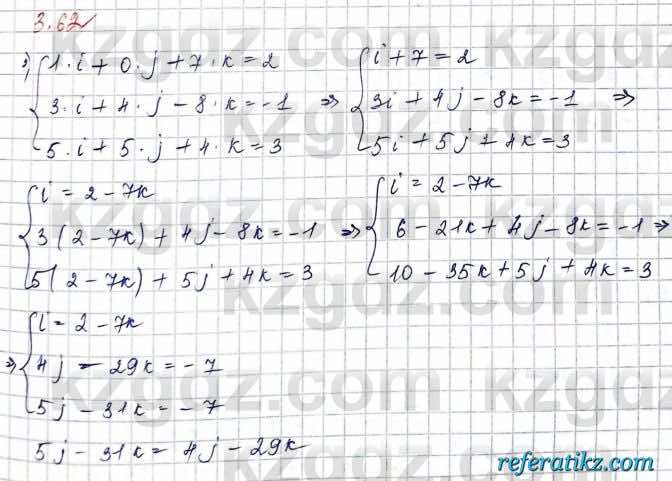 3.62
1) { 1·i + 0·j + 7·k = 2
3·i + 4·j - 8·k = -1 ⇒
5·i + 5·j + 4·k = 3
{ i + 7 = 2
3i + 4j - 8k = -1 ⇒
5i + 5j + 4k = 3
{ i = 2 - 7k
3(2 - 7k) + 4j - 8k = -1 ⇒
5(2 - 7k) + 5j + 4k = 3
{ i = 2 - 7k
6 - 21k + 4j - 8k = -1 ⇒
10 - 35k + 5j + 4k = 3
⇒ { i = 2 - 7k
4j - 29k = -7
5j - 31k = -7
5j - 31k = 4j - 29k
kzgdz.com
referatikz.com